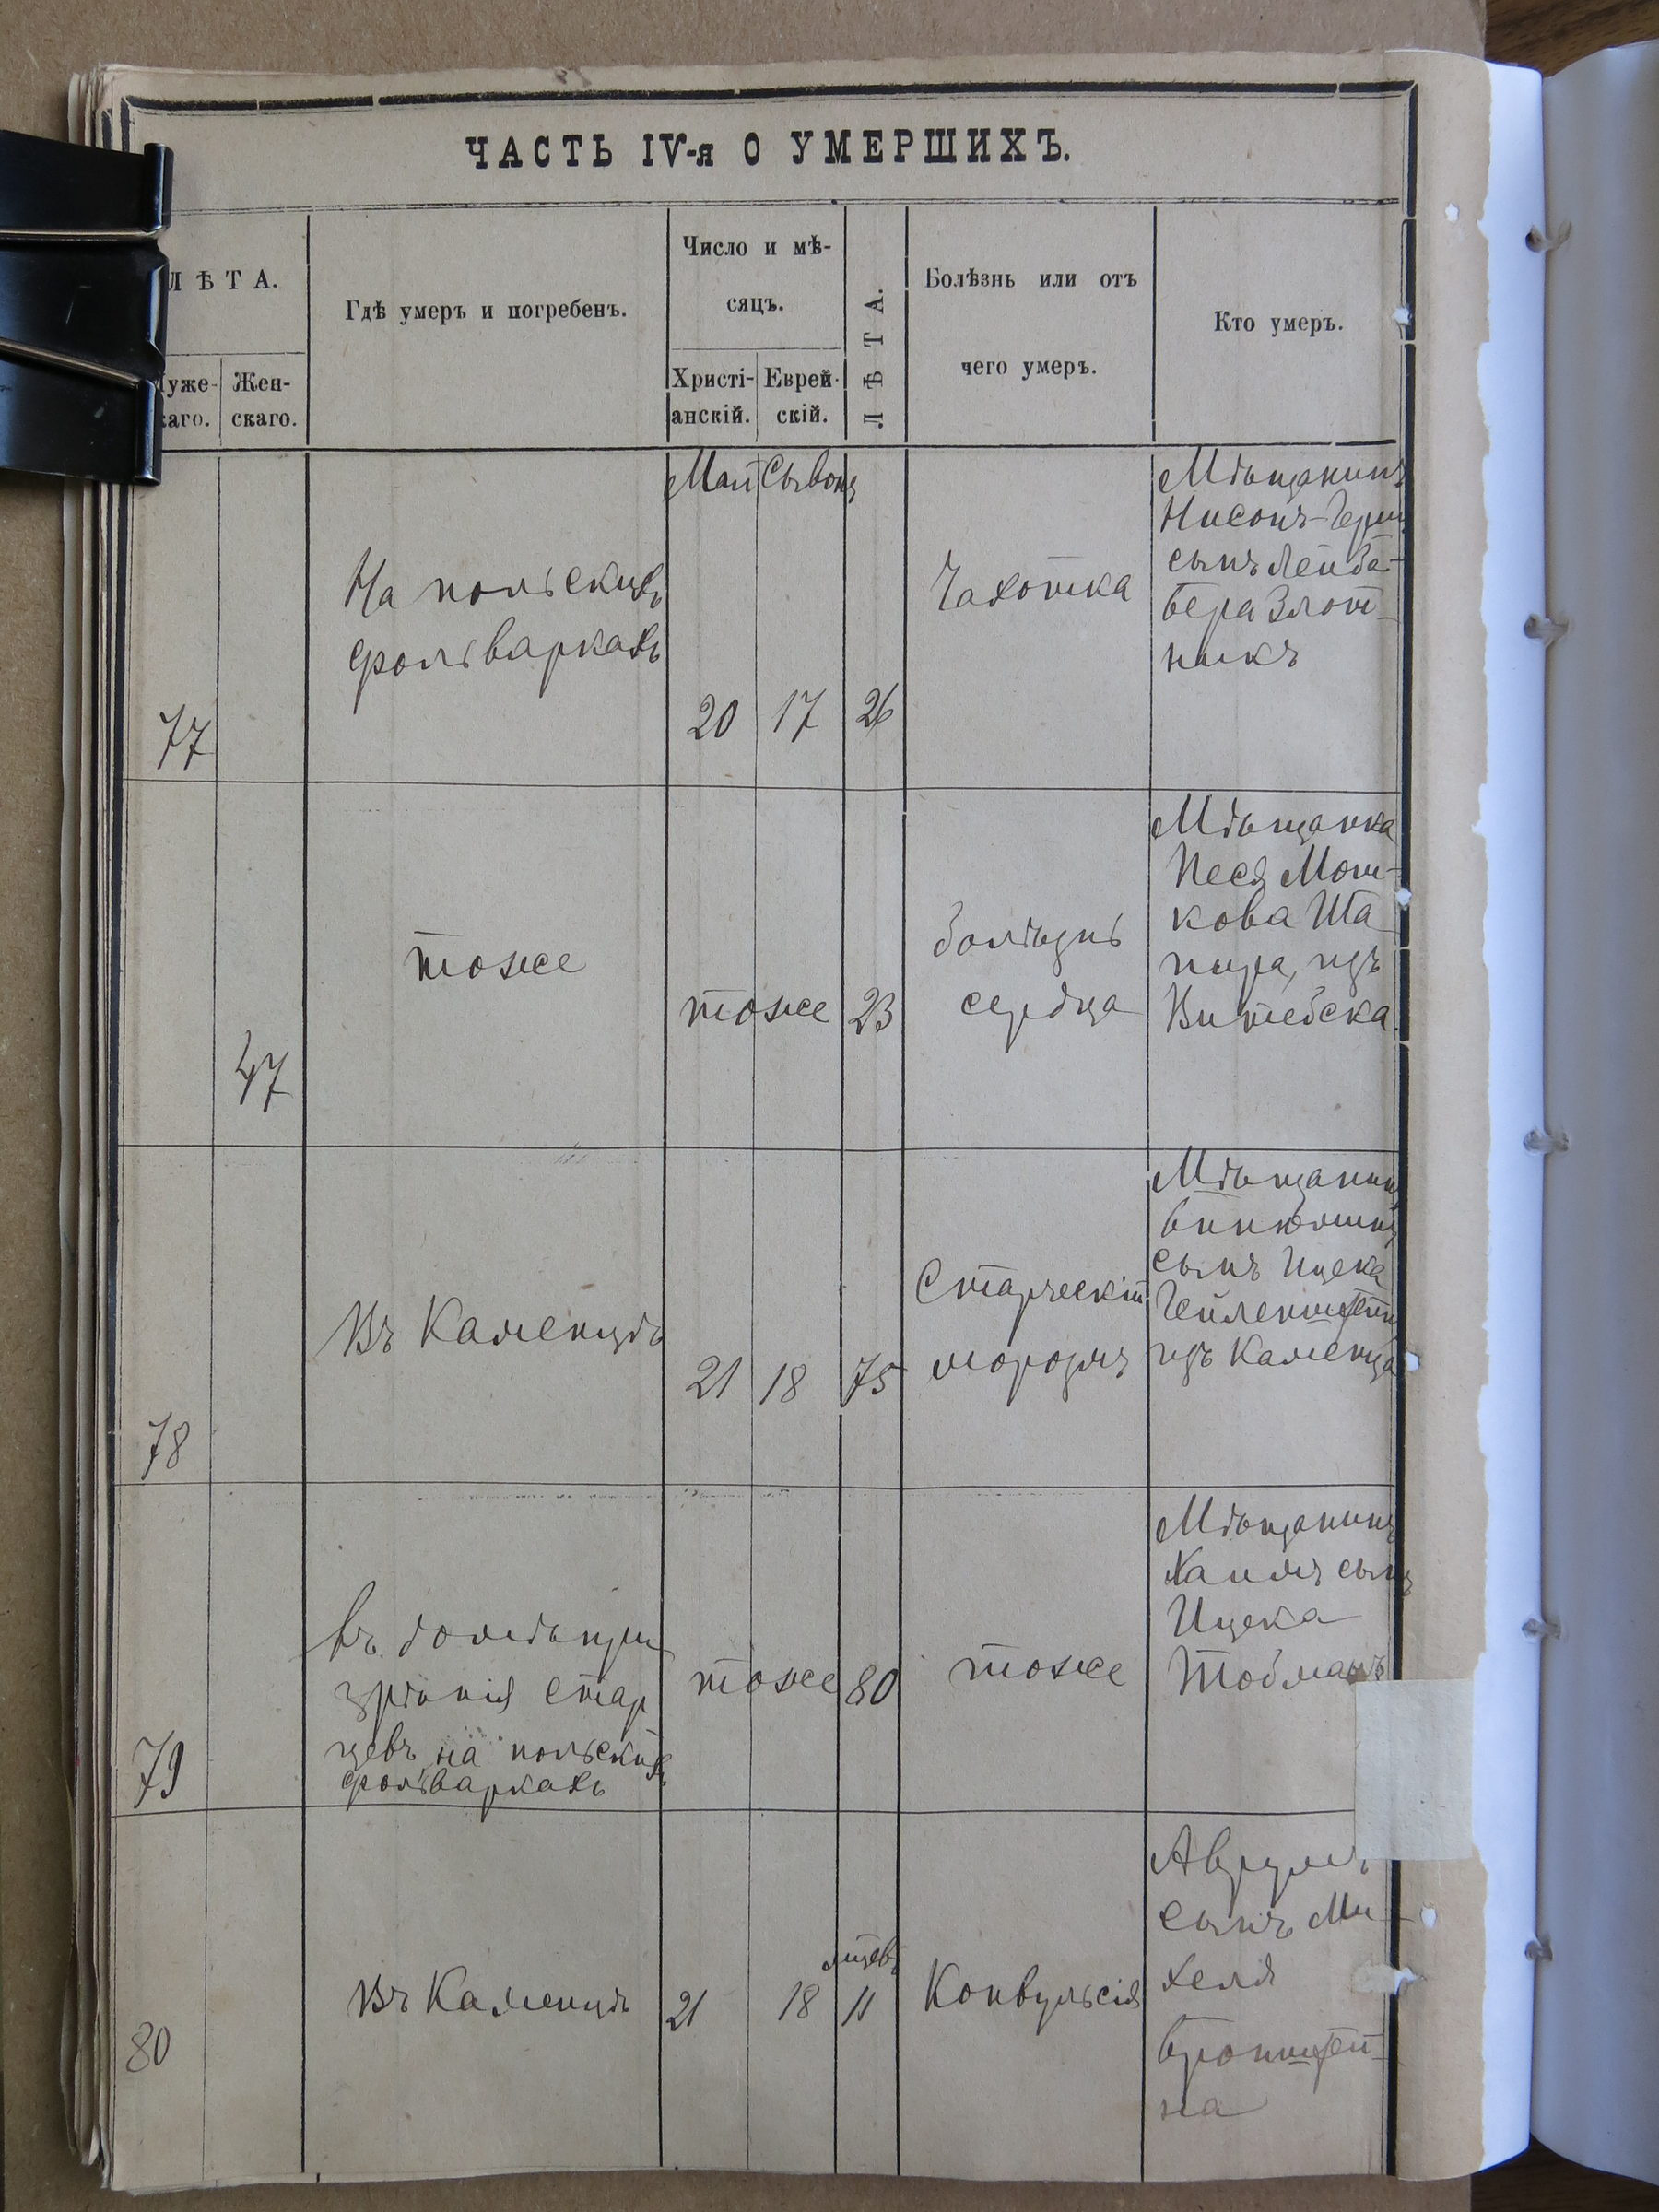 ЧАСТЬ IV-я О УМЕРШИХЪ.
ЛѢТА.
Муже-
каго.
Жен-
скаго.
Гдѣ умеръ и погребенъ.
Число и мѣ-
сяцъ.
Христі-
анскій.
Еврей-
скій.
ЛѢТА.
Болѣзнь или отъ
чего умеръ.
Кто умеръ.
77
На польскихъ
фольваркахъ
Май
20
Сывонъ
17
26
Чахотка
Мѣщанинъ
Нисонъ-Герш
сынъ Лейба-
Бера Злот-
никъ
47
тоже
тоже
23
болѣзнь
сердца
Мѣщанка
Песя Мош-
кова Ша
пира, изъ
Витебска
78
Въ Каменцѣ
21
18
75
Старческій
моразмъ
Мѣщанинъ
сынъ Ицека
изъ Каменца
79
въ домѣ при
зрѣнія стар
цевъ на польскихъ
фольваркахъ
тоже
80
тоже
Мѣщанинъ
Хаимъ сынъ
Ицека
80
Въ Каменцѣ
21
18
мцевъ
11
Конвульсія
Аврумъ
сынъ Ми-
хеля
Бронштей-
на